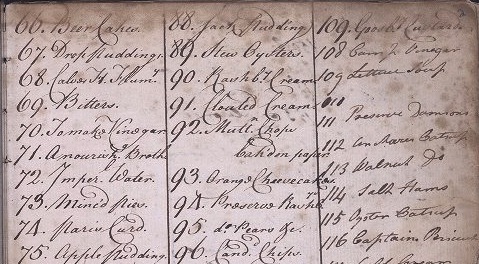 66. Beer Cakes.
67. Drop Pudding
68. Calves Ft. Flum.y
69. Bitters.
70. To make Vinegar
71. A nourish.g Broth
72. Imper.l Water
73. Minc'd pies.
74. Paris Curd.
75. Apple Pudding
88. Sack Pudding
89. Stew Oysters.
90. Rasb.y Cream
91. Clouted Cream
92. Mutt.n Chops
paper
93. Orange Cheesecakes
94. Preserve Rasb.s
95. d.o Pears &c.
96. Chips.
109. Custards
108 Vinegar
109 Lettuce Soup
110
111 Preserve Damsons
112 Catsup
113 Walnut Do
114 Salt Hams
115 Oyster Catsup
116 Captains Biscuits
Cream